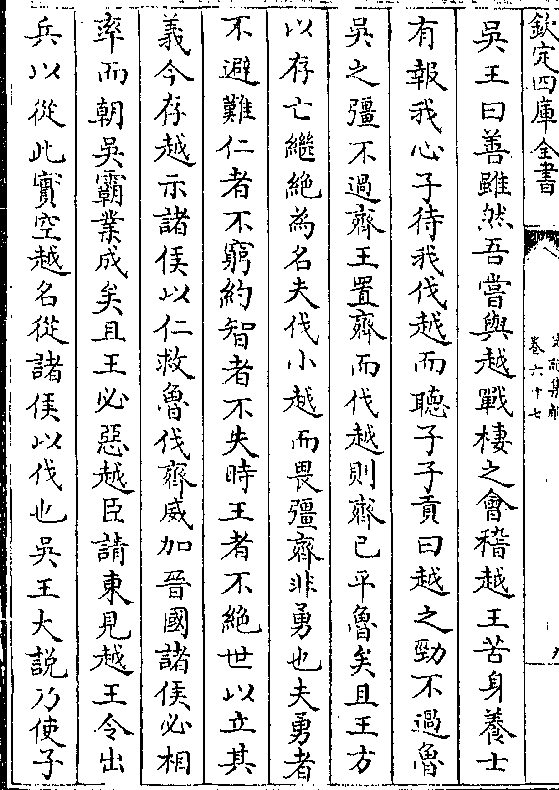 欽定四庫全書
卷六十七
吳王曰善雖然吾嘗與越戰棲之會稽越王苦身養士
有報我心子待我伐越而聽子子貢曰越之勁不過魯
吳之彊不過齊王置齊而伐越則齊已平魯矣且王方
以存亡繼絶為名夫伐小越而畏彊齊非勇也夫勇者
不避難仁者不窮約智者不失時王者不絶世以立其
義今存越示諸侯以仁救魯伐齊威加晉國諸侯必相
率而朝吳霸業成矣且王必惡越臣請東見越王令出
兵以從此實空越名從諸侯以伐也吳王大説乃使子